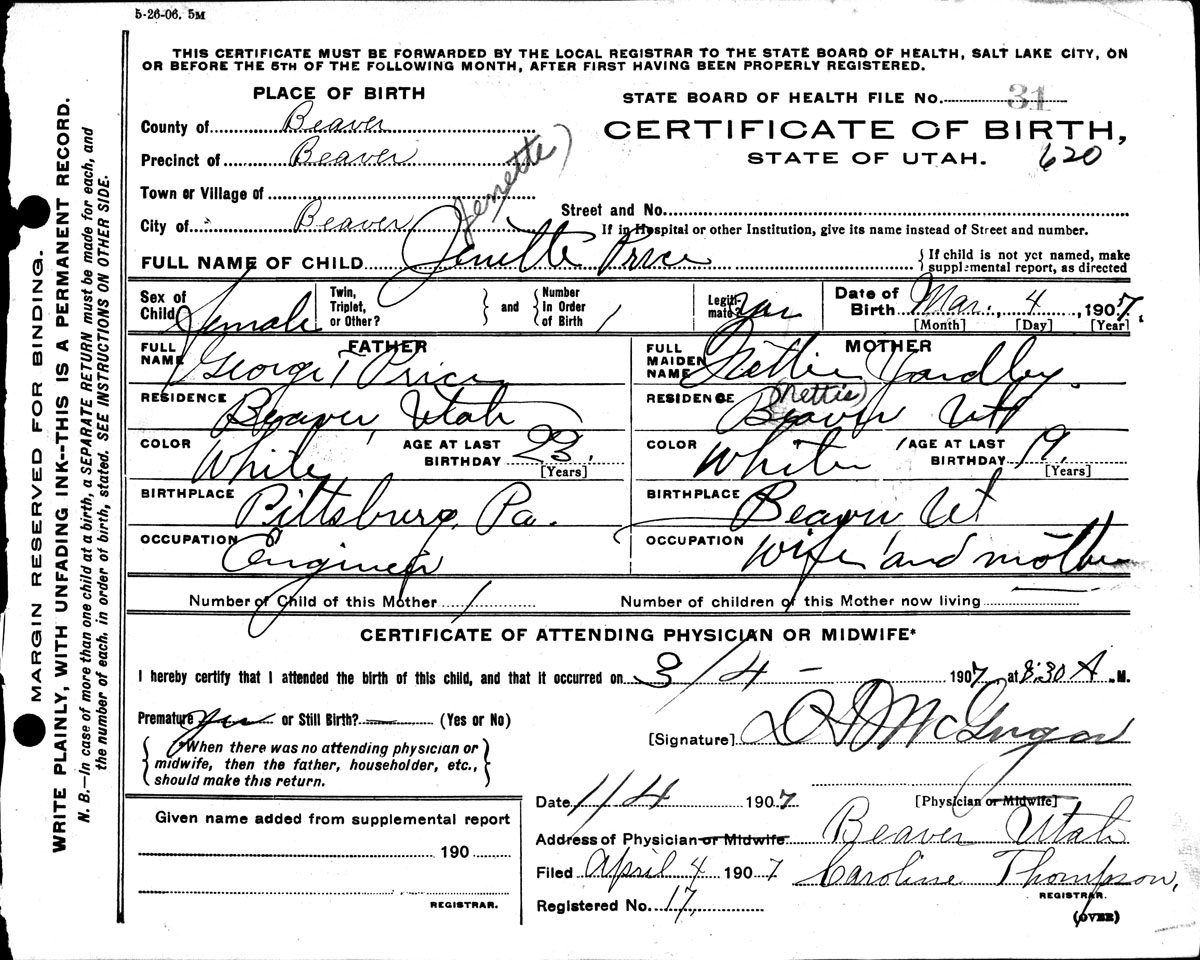 5-26-06. 5M
THIS CERTIFICATE MUST BE FORWARDED BY THE LOCAL REGISTRAR TO THE STATE BOARD OF HEALTH, SALT LAKE CITY, ON
OR BEFORE THE 5TH OF THE FOLLOWING MONTH, AFTER FIRST HAVING BEEN PROPERLY REGISTERED.
PLACE OF BIRTH
STATE BOARD OF HEALTH FILE No. 31
County of Beaver
CERTIFICATE OF BIRTH,
Precinct of Beaver
STATE OF UTAH. 620
Town or Village of
Street and No.
City of Beaver
If in Hospital or other Institution, give its name instead of Street and number.
(Jenette)
FULL NAME OF CHILD Jenitte Price { If child is not yet named, make
supplemental report, as directed
Sex of Child Female
Twin, Triplet, or Other? } and { Number in Order of Birth 1
Legitimate? Yes
Date of Birth Mar. 4 1907.
[Month] [Day] [Year]
FATHER
FULL NAME George T Price
RESIDENCE Beaver, Utah
COLOR White AGE AT LAST BIRTHDAY 23.
[Years]
BIRTHPLACE Pittsburg, Pa.
OCCUPATION Engineer
MOTHER
FULL MAIDEN NAME Nettie Yardley.
(Nettie)
RESIDENCE Beaver Ut
COLOR White AGE AT LAST BIRTHDAY 19.
[Years]
BIRTHPLACE Beaver Ut
OCCUPATION Wife and mother
Number of Child of this Mother 1 Number of children of this Mother now living
CERTIFICATE OF ATTENDING PHYSICIAN OR MIDWIFE*
I hereby certify that I attended the birth of this child, and that it occurred on 3/4 - 1907, at 8:30 A. M.
Premature Yes or Still Birth? — (Yes or No)
[Signature]
{ *When there was no attending physician or
midwife, then the father, householder, etc.,
should make this return. }
Date 1/4 1907
[Physician or Midwife]
Given name added from supplemental report
190
REGISTRAR.
Address of Physician or Midwife Beaver Utah
Filed April 4 1907 Caroline Thompson,
REGISTRAR.
Registered No. 17,
(OVER)
MARGIN RESERVED FOR BINDING.
WRITE PLAINLY, WITH UNFADING INK--THIS IS A PERMANENT RECORD.
N. B.—In case of more than one child at a birth, a SEPARATE RETURN must be made for each, and
the number of each, in order of birth, stated. SEE INSTRUCTIONS ON OTHER SIDE.